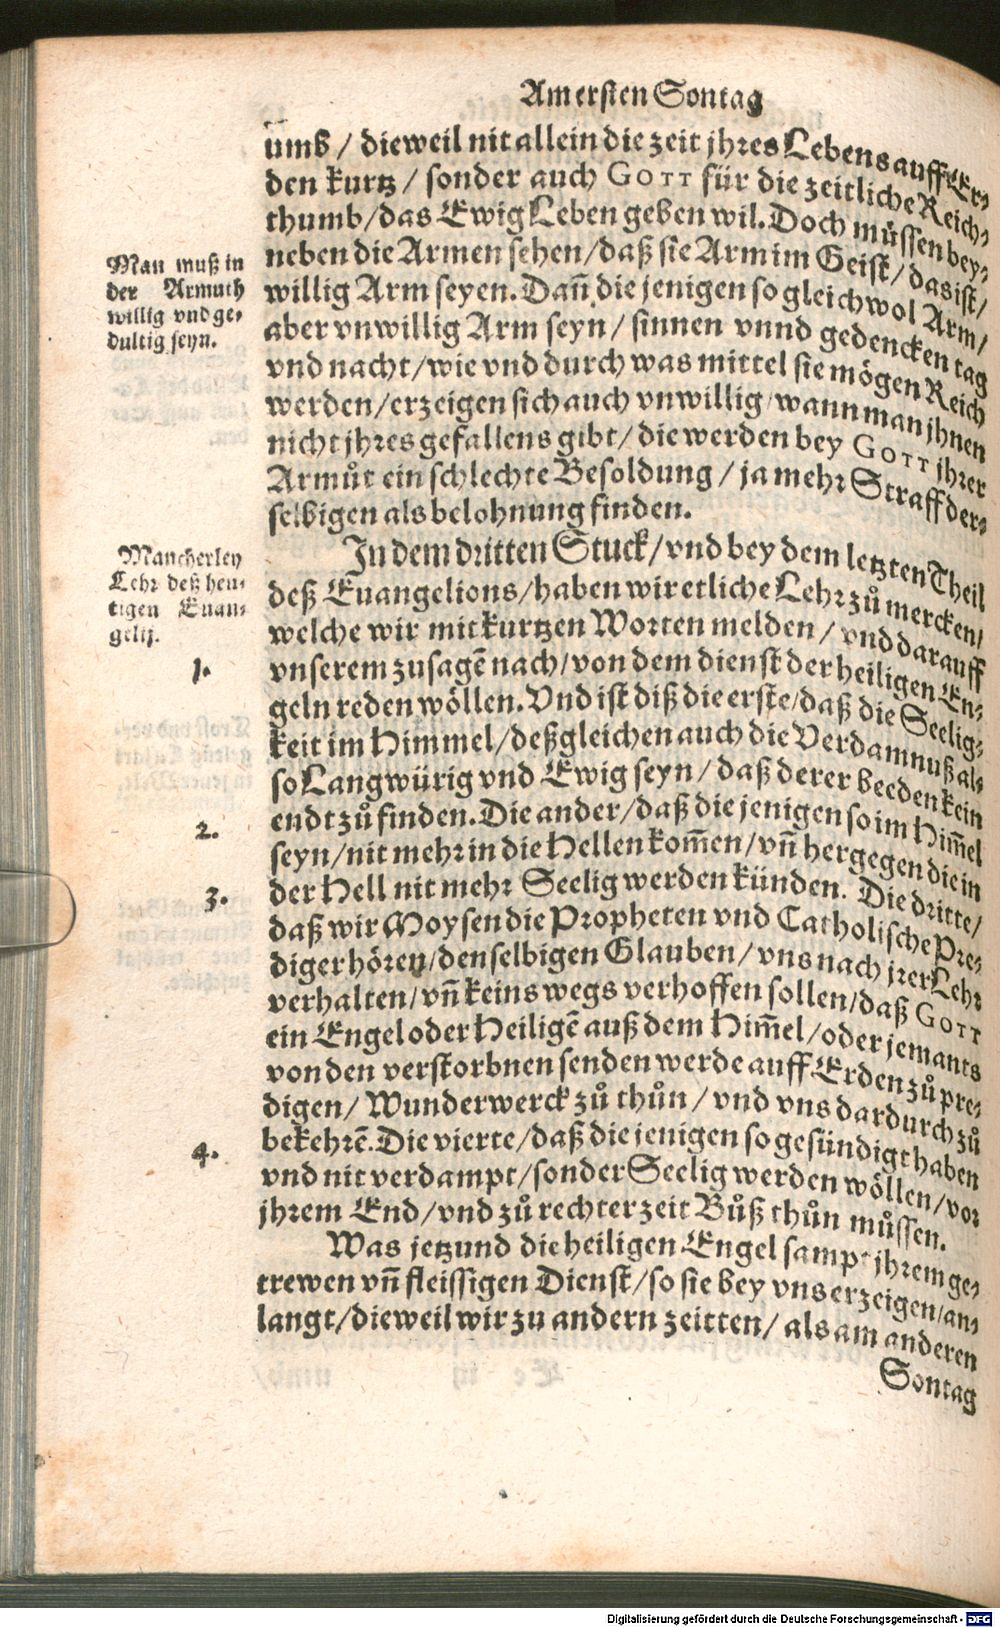 Am ersten Sontag
umb / dieweil nit allein die zeit jhres Lebens auff Er⸗
den kurtz / sonder auch GOTT für die zeitliche Reich⸗
thumb / das Ewig Leben geben wil. Doch müssen bey⸗
neben die Armen sehen / daß sie Arm im Geist / das ist /
willig Arm seyen. Dañ die jenigen so gleichwol Arm /
aber vnwillig Arm seyn / sinnen vnnd gedencken tag
vnd nacht / wie vnd durch was mittel sie mögen Reich
werden / erzeigen sich auch vnwillig / wann man jhnen
nicht jhres gefallens gibt / die werden bey GOTT jhrer
Armůt ein schlechte Besoldung / ja mehr Straff der⸗
selbigen als belohnung finden.
Man muß in
der Armuth
willig vnd ge⸗
dultig seyn.
In dem dritten Stuck / vnd bey dem letzten Theil
deß Euangelions / haben wir etliche Lehr zů mercken /
welche wir mit kurtzen Worten melden / vnd darauff
vnserem zusagē nach / von dem dienst der heiligen En⸗
geln reden wöllen. Vnd ist diß die erste / daß die Seelig⸗
keit im Himmel / deßgleichen auch die Verdamnuß al⸗
so Langwürig vnd Ewig seyn / daß derer beeden kein
endt zů finden. Die ander / daß die jenigen so im Him̃el
seyn / nit mehr in die Hellen kom̃en / vñ hergegen die in
der Hell nit mehr Seelig werden künden. Die dritte /
daß wir Moysen die Propheten vnd Catholische Pre⸗
diger hören / denselbigen Glauben / vns nach jrer Lehr
verhalten / vñ keins wegs verhoffen sollen / daß GOTT
ein Engel oder Heiligē auß dem Him̃el / oder jemants
von den verstorbnen senden werde auff Erden zů pre⸗
digen / Wunderwerck zů thůn / vnd vns dardurch zů
bekehrē. Die vierte / daß die jenigen so gesündigt haben
vnd nit verdampt / sonder Seelig werden wöllen / vor
jhrem End / vnd zů rechter zeit Bůß thůn můssen.
Mancherley
Lehr deß heu⸗
tigen Euan⸗
gelij.
1.
2.
3.
4.
Was jetzund die heiligen Engel sampt jhrem ge⸗
trewen vñ fleissigen Dienst / so sie bey vns erzeigen / an⸗
langt / dieweil wir zu andern zeitten / als am anderen
Sontag
Digitalisierung gefördert durch die Deutsche Forschungsgemeinschaft - DFG